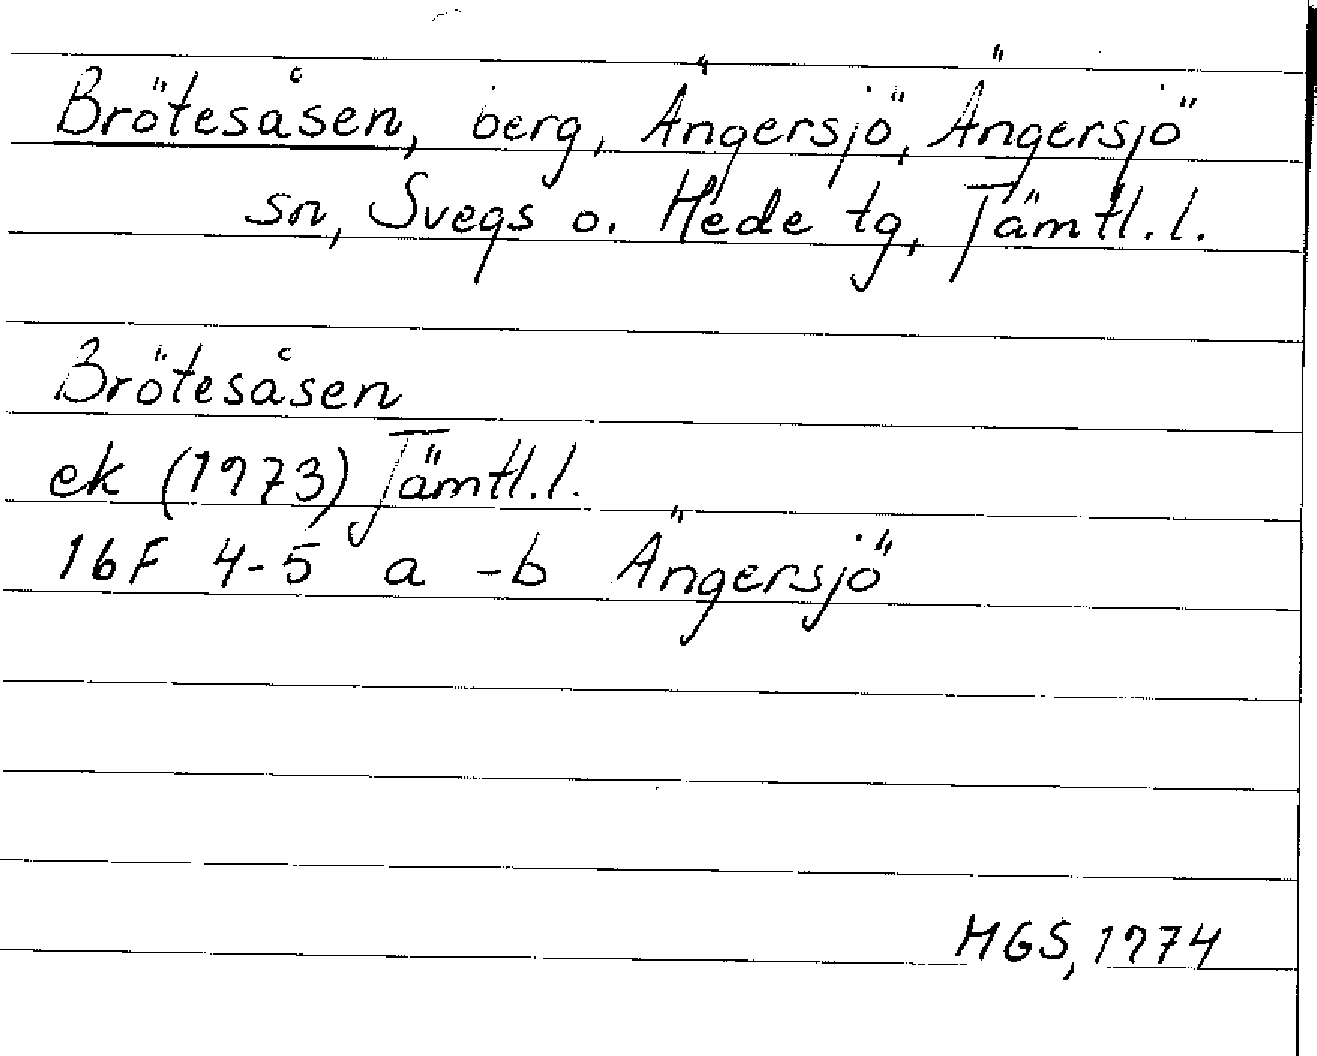 Brötesåsen, berg, Ängersjö, Ängersjö
sn, Svegs o. Hede tg, Jämtl. l.
Brötesåsen
ek (1973) Jämtl. l.
16F 4-5 a -b Ängersjö
MGS, 1974